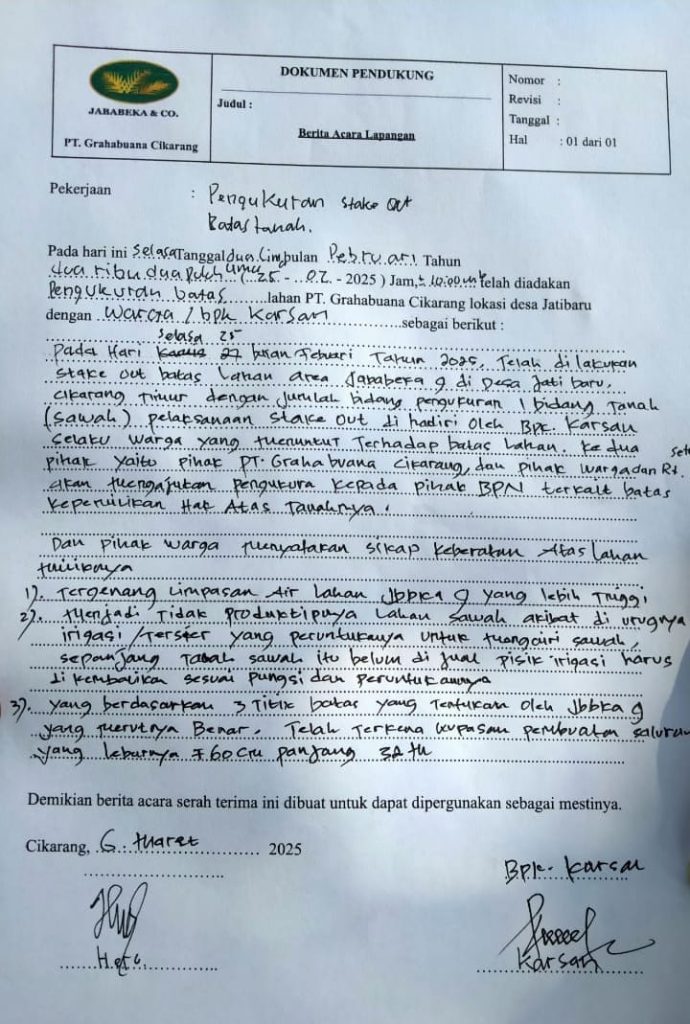 JABABEKA & CO.
PT. Grahabuana Cikarang
DOKUMEN PENDUKUNG
Judul :
Berita Acara Lapangan
Nomor :
Revisi :
Tanggal :
Hal : 01 dari 01
Pekerjaan : Pengukuran stake out
Batas tanah.
Pada hari ini Selasa Tanggal dua Limpulan Pebruari Tahun
dua ribu dua puluh (25 - 02 - 2025 ) Jam, ± 10:00 Telah diadakan
Pengukuran batas lahan PT. Grahabuana Cikarang lokasi desa Jatibaru
dengan Warga / bpk Karsan sebagai berikut :
Selasa 25
Pada Hari Kamis 27 bulan Februari Tahun 2025, Telah di lakukan
stake out batas Lahan area Jababeka 9 di Desa Jati baru,
cikarang Timur dengan Jumlah bidang pengukuran 1 bidang Tanah
(Sawah) pelaksanaan stake out di hadiri oleh Bpk. Karsan
selaku warga yang menuntut Terhadap batas Lahan. Ke dua
pihak yaitu pihak PT. Grahabuana cikarang, dan pihak warga dan Rt.
akan mengajukan pengukura kepada pihak BPN terkait batas
kepemilikan Hak Atas Tanahnya.
Dan pihak warga menyatakan sikap keberatan Atas lahan
miliknya
1). Tergenang Limpasan Air Lahan Jbbka 9 yang lebih Tinggi
2). Menjadi Tidak produktipnya Lahan sawah akibat di urugnya
irigasi / Tersier yang peruntukanya untuk mangairi sawah,
sepanjang sawah itu belum di jual pisik irigasi harus
di kembalikan sesuai pungsi dan peruntukannya
3). yang berdasarkan 3 Titik batas yang Tentukan oleh Jbbka 9
yang menurutnya Benar, Telah Terkena kupasan pembuatan saluran
yang lebarnya ∓ 60 cm panjang 32 m
Demikian berita acara serah terima ini dibuat untuk dapat dipergunakan sebagai mestinya.
Cikarang, 6 Maret 2025
Bpk. Karsan
Karsan